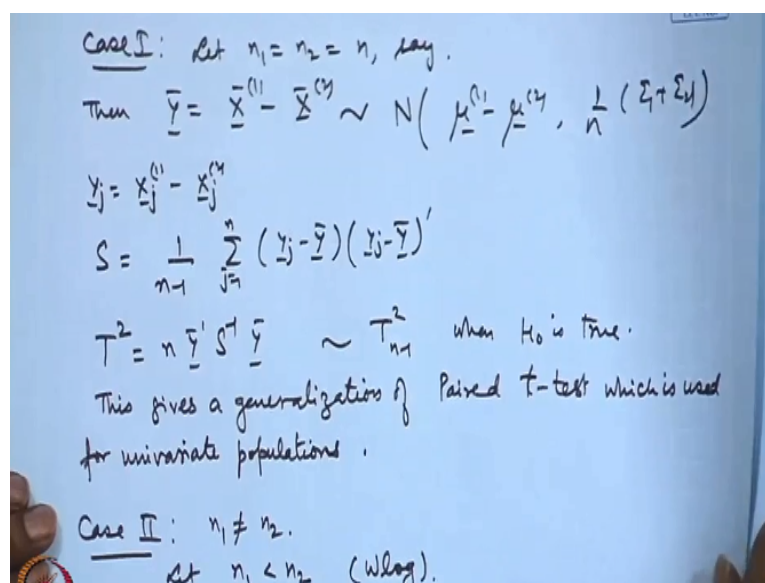 Case I: Let n₁ = n₂ = n, say.
Then Ȳ = X̄⁽¹⁾ - X̄⁽²⁾ ~ N( μ⁽¹⁾ - μ⁽²⁾, 1/n (Σ₁ + Σ₂))
Yj = Xj⁽¹⁾ - Xj⁽²⁾
S = 1/(n-1) Σ_{j=1}^{n} (Yj - Ȳ)(Yj - Ȳ)'
T² = n Ȳ' S⁻¹ Ȳ ~ T²_{n-1} when H₀ is true.
This gives a generalization of Paired t-test which is used
for univariate populations.
Case II: n₁ ≠ n₂.
Let n₁ < n₂ (Wlog).